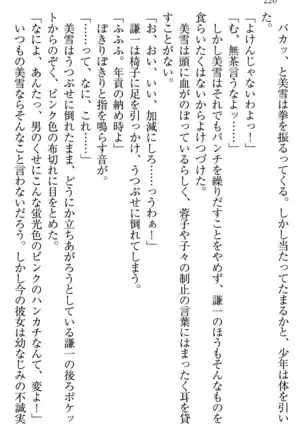 220
バカッ、と美雪は拳を振るってくる。しかし当たってたまるかと、少年は体を引いた。
「よけんじゃないわよっ！」
「む、無茶言うなよッ……」
しかし美雪はそれでもパンチを繰りだすことをやめず、謙一のほうもそんなものを食らいたくはないからよけつづけた。
美雪は頭に血がのぼっているらしく、蓉子や子々の制止の言葉にはまったく耳を貸すことがない。
「お、おい、いい、加減にしろ……っうわぁ！」
謙一は椅子に足を引っかけ、うつぶせに倒れてしまう。
「ふふふ。年貢の納め時よ」
ぽきりぽきりと指を鳴らす音が。
「……って、なに、これ……」
美雪はうつぶせに倒れたまま、どうにか立ちあがろうとしている謙一の後ろポケットからのぞく、ピンク色の布切れに目をとめた。
「なによ、あんたっ、男のくせにこんな蛍光色のピンクのハンカチなんて、変よ！」
いつもの美雪ならそんなこと言わないだろう。しかし今の彼女は幼なじみの不誠実